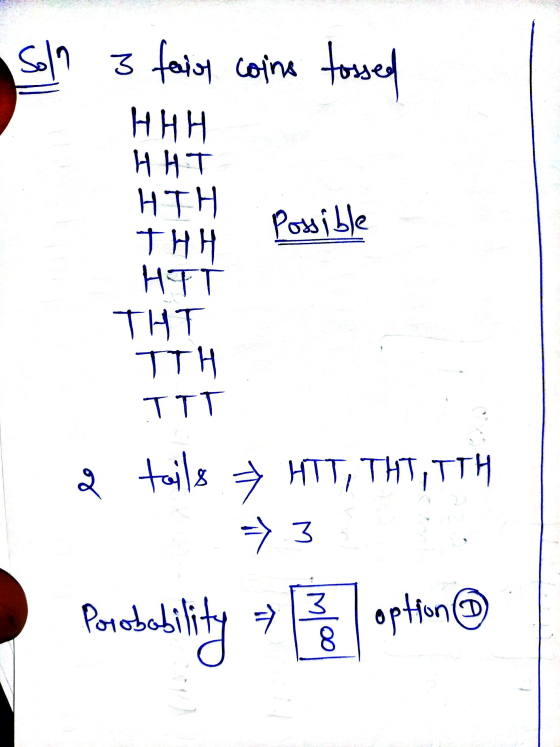 Soln 3 fair coins tossed
HHH
HHT
HTH
THH
Possible
HTT
THT
TTH
TTT
2 tails ⇒ HTT, THT, TTH
⇒ 3
Porobability ⇒ 3/8 option D